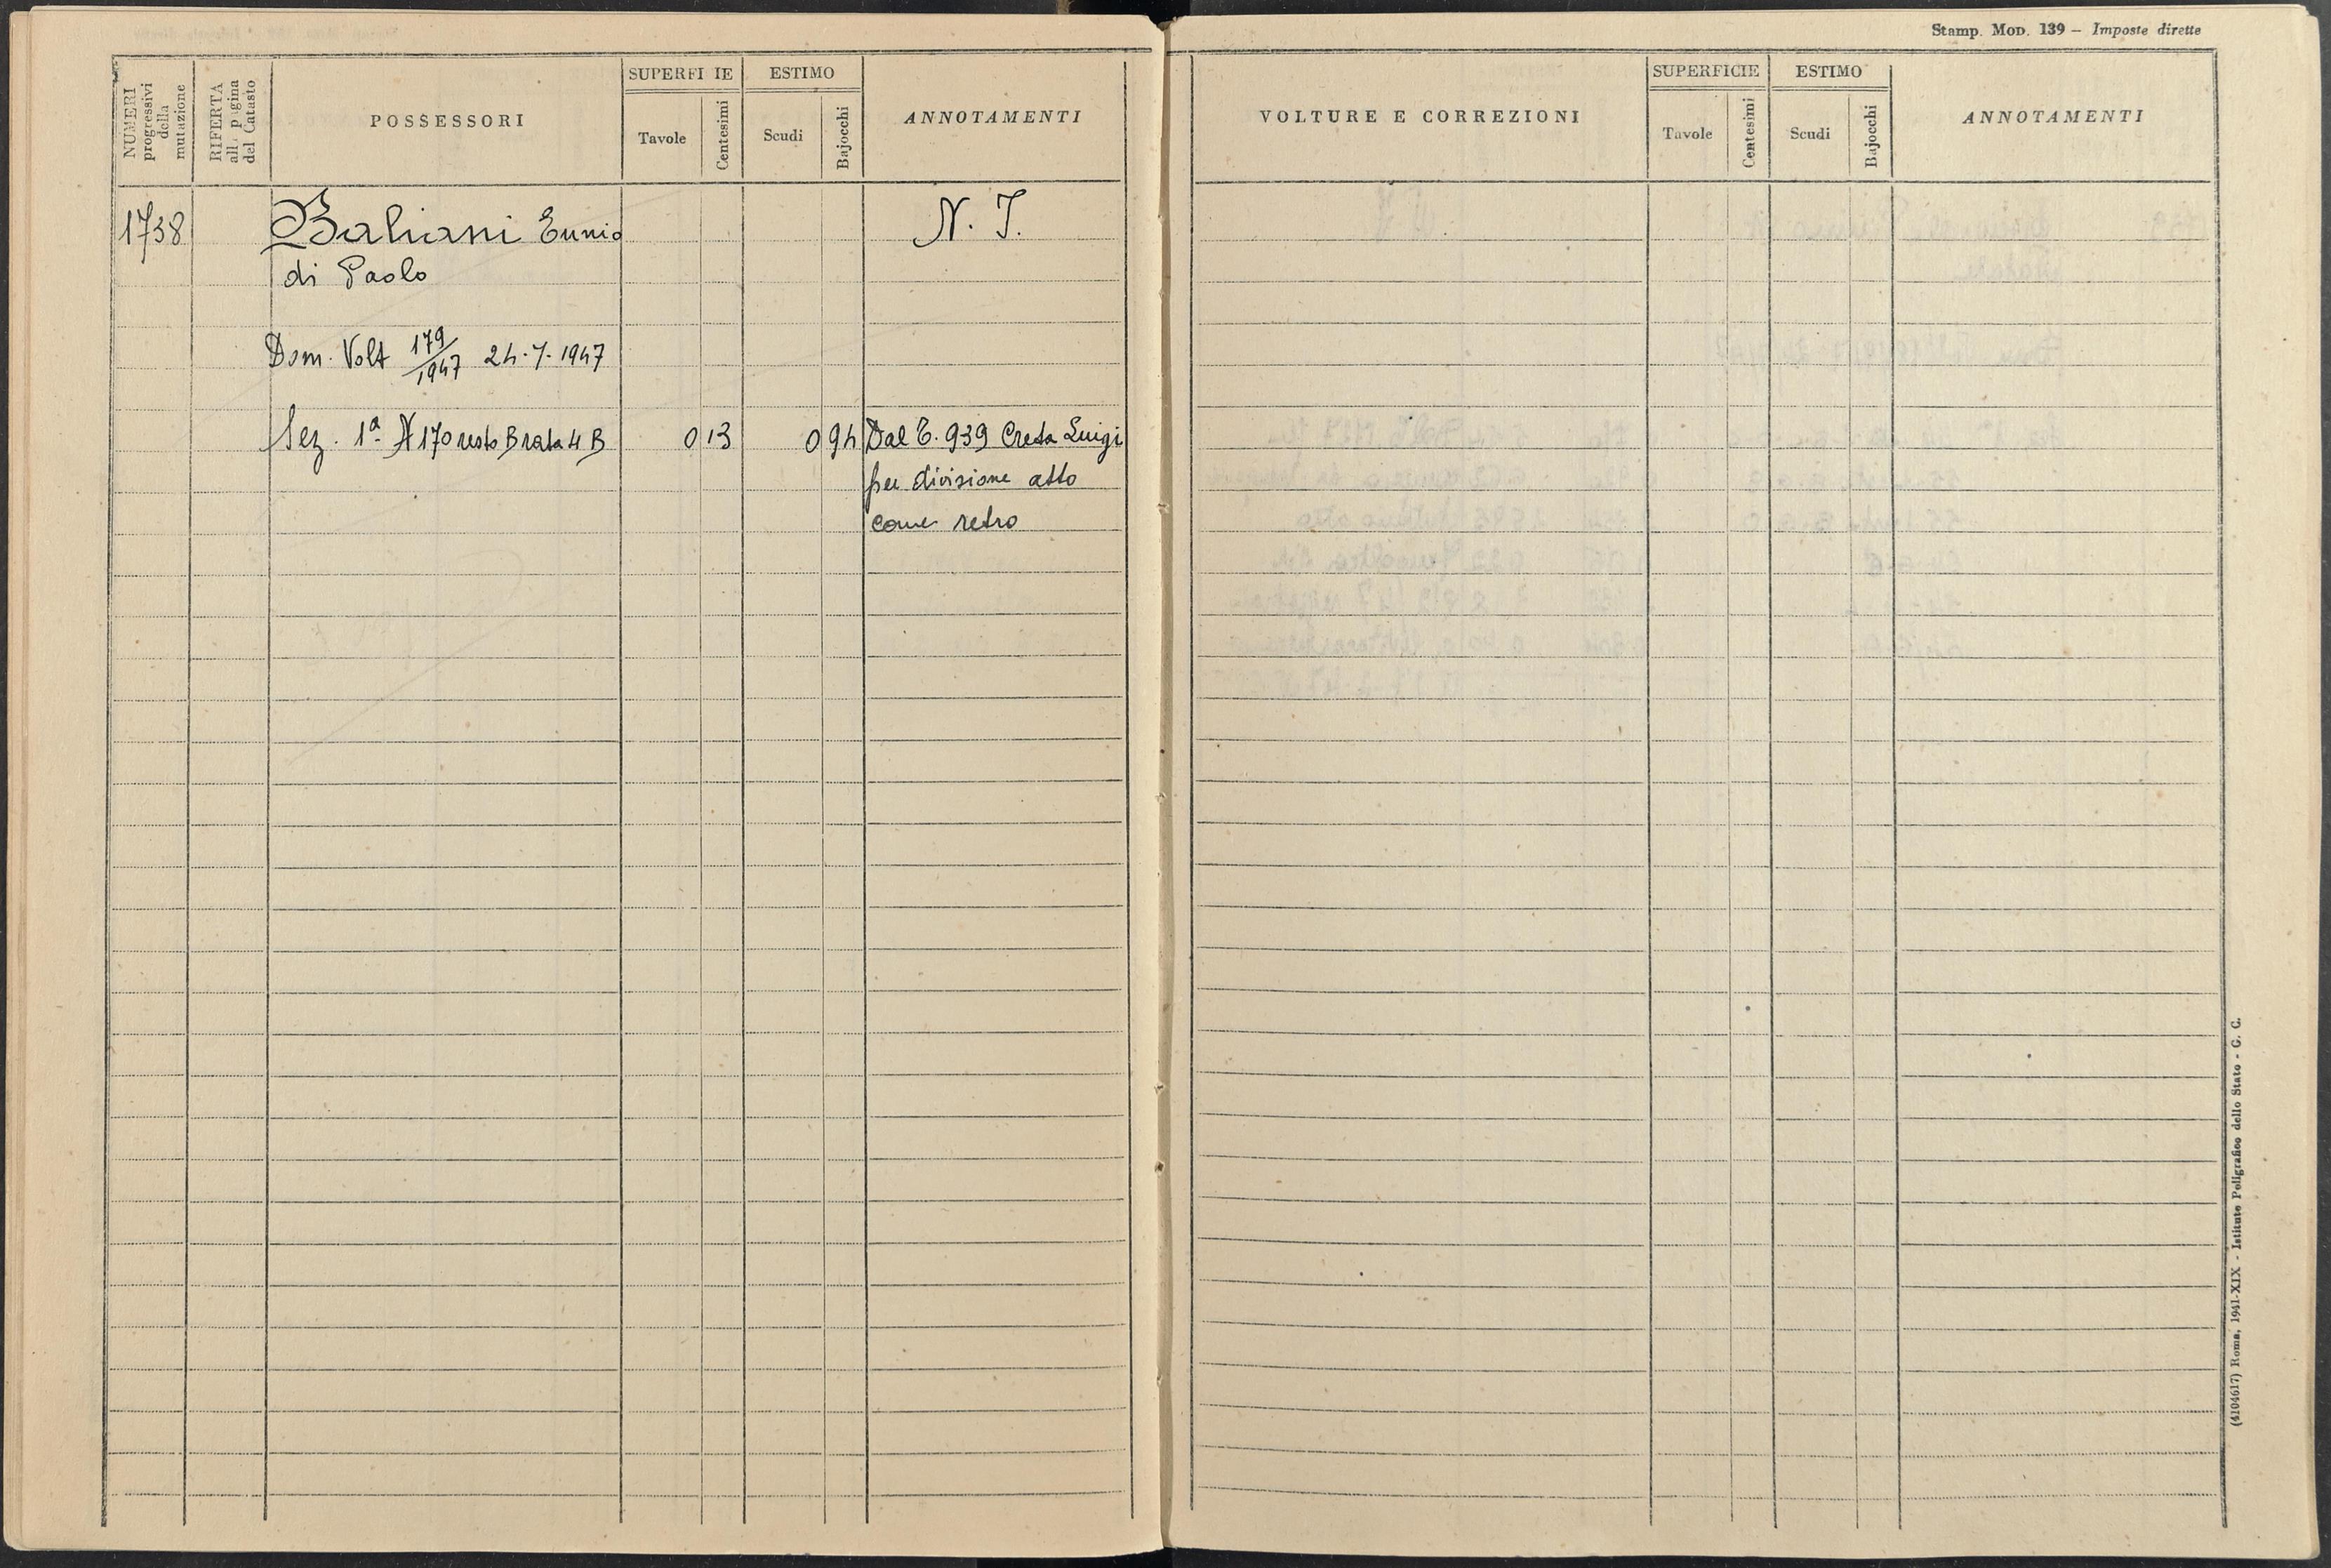 Stamp. Mod. 139 — Imposte dirette
NUMERI progressivi della mutazione
RIFERTA all. pagina del Catasto
POSSESSORI
SUPERFI IE
Tavole
Centesimi
ESTIMO
Scudi
Bajocchi
ANNOTAMENTI
VOLTURE E CORREZIONI
SUPERFICIE
Tavole
Centesimi
ESTIMO
Scudi
Bajocchi
ANNOTAMENTI
1738 Baliani Ennio N. I.
di Paolo
Dom. Volt 179/1947 24.7.1947
Sez. 1ª N 170 resto B rata 4 B 0 13 0 94 Dal T. 939 Creta Luigi
per divisione atto
come retro
(4104617) Roma, 1941-XIX - Istituto Poligrafico dello Stato - G. C.